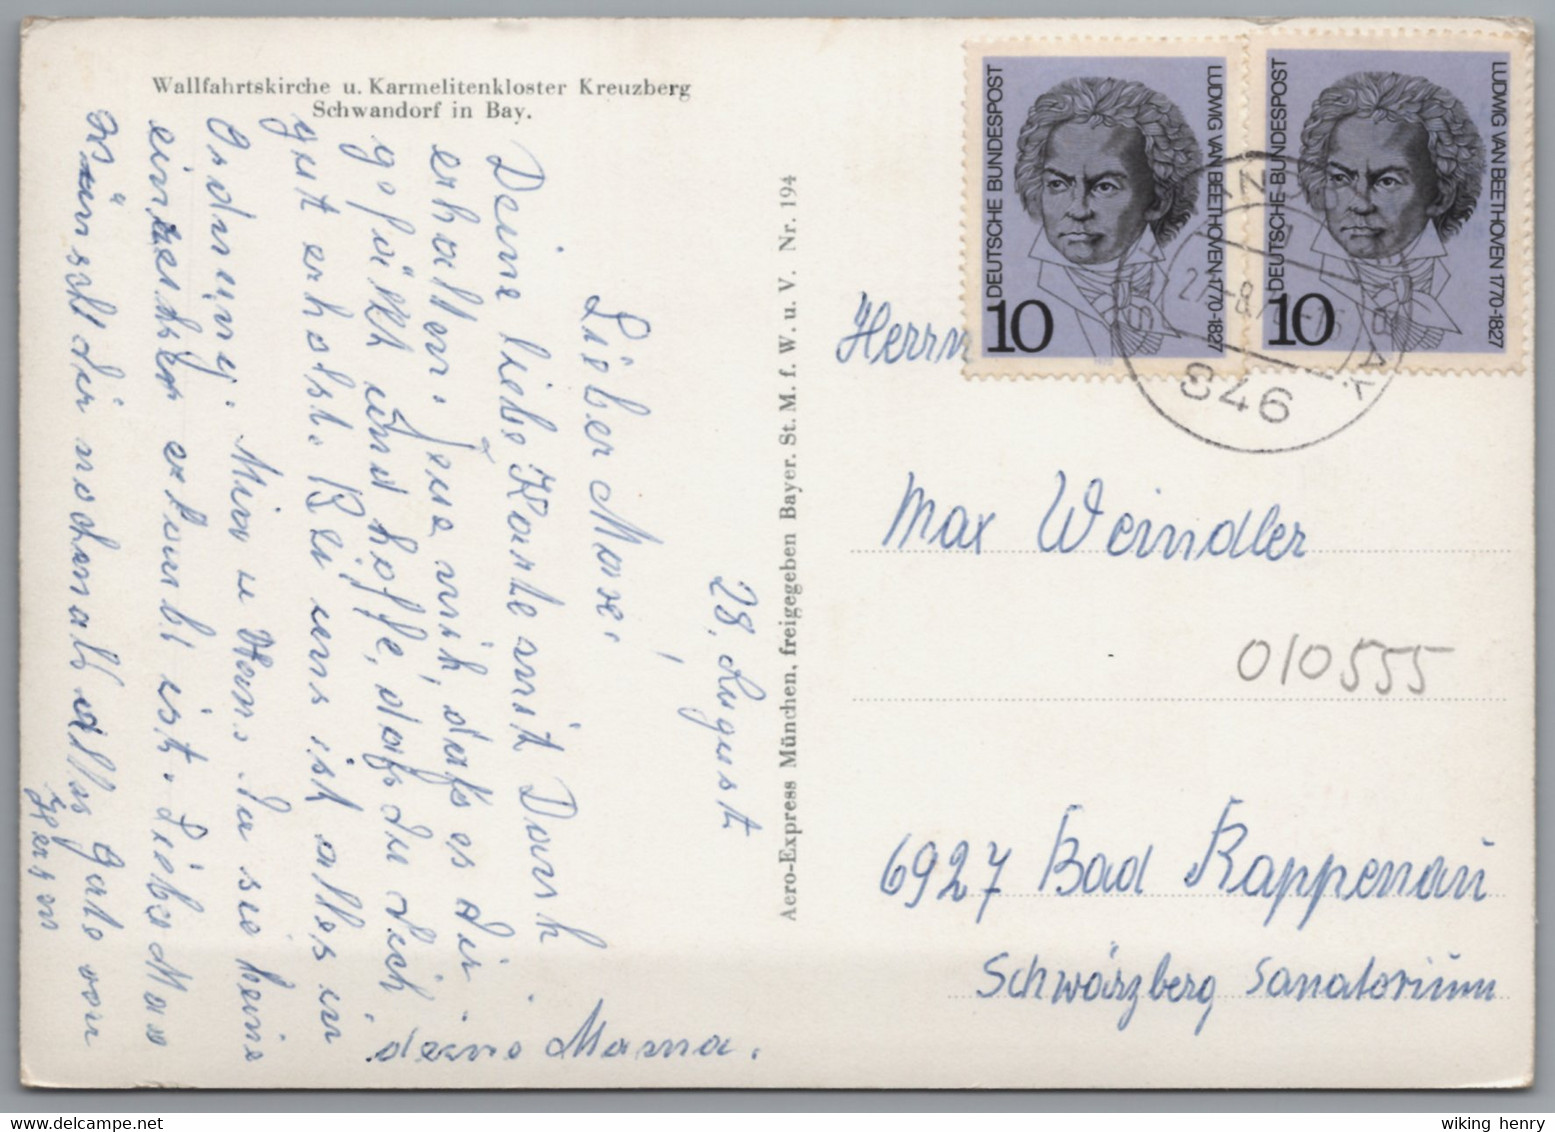 Wallfahrtskirche u. Karmelitenkloster Kreuzberg
Schwandorf in Bay.
28. August
Lieber Maxe!
Deine liebe Karte mit Dank
erhalten. Freue mich, daß es dir
gefällt und hoffe, daß du dich
gut erholst. Bei uns ist alles in
Ordnung.
erlaubt ist. Lieber Max
wünscht dir nochmals alles Gute von
Herzen
deine Mama.
Aero-Express München, freigegeben Bayer. St. M. f. W. u. V. Nr. 194
DEUTSCHE BUNDESPOST
LUDWIG VAN BEETHOVEN 1770-1827
10
DEUTSCHE BUNDESPOST
LUDWIG VAN BEETHOVEN 1770-1827
10
846
Herrn
Max Weindler
010555
6927 Bad Rappenau
Schwärzberg Sanatorium
wiking henry